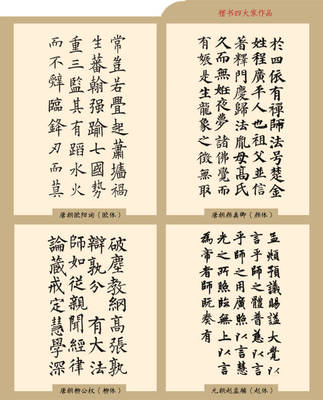 楷书四大家作品
常豈若疊起蕭墻禍
生蕃翰强踰七國勢
重三監其有蹈水火
而不辤臨鋒刃而莫
唐朝欧阳询（欧体）
於四依有禪師法号楚金
姓程廣平人也祖父並信
著釋門慶歸法胤母高氏
久而無姙夜夢諸佛覺而
有娠是生龍象之徵無取
唐朝颜真卿（颜体）
破塵教網高張孰
辯孰分有大法
師如從親聞經律
論藏戒定慧學深
唐朝柳公权（柳体）
孟頫預議賜謚大覺以
言乎師之體普慈以言
乎師之用廣照以言慧
光之所照臨無上以言
為帝者師既奏有
元朝赵孟頫（赵体）